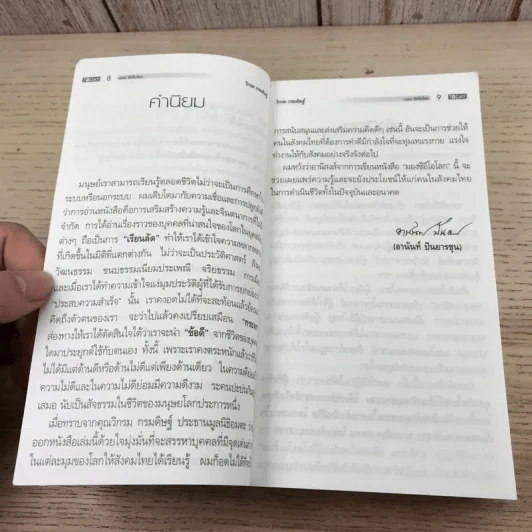 8
คำนิยม
มนุษย์เราสามารถเรียนรู้ตลอดชีวิตไม่ว่าจะเป็นการศึกษาใน
ระบบหรือนอกระบบ ผมเติบโตมากับความเชื่อและการปลูกฝัง
ว่าการอ่านหนังสือคือการเสริมสร้างความรู้และจินตนาการที่ไม่
จำกัด การได้อ่านเรื่องราวของบุคคลที่น่าสนใจของโลกในยุค
ต่างๆ ถือเป็นการ "เรียนลัด" ทำให้เราได้เข้าใจความหลาก
ที่เกิดขึ้นในมิติที่แตกต่างกัน ไม่ว่าจะเป็นประวัติศาสตร์ สังคม
วัฒนธรรม ขนบธรรมเนียมประเพณี จริยธรรม การเมือง
และเมื่อเราได้ทำความเข้าใจแง่มุมประวัติผู้ที่ได้รับการยกย่อง
"ประสบความสำเร็จ" นั้น เราคงอดไม่ได้ที่จะสะท้อนแล้วย้อน
คิดถึงตัวตนของเรา จะว่าไปแล้วคงเปรียบเสมือน "กระจก
ส่องทางให้เราได้ตัดสินใจได้ว่าเราจะนำ "ข้อดี" จากชีวิตของบุคคล
ใดมาประยุกต์ใช้กับตนเอง ทั้งนี้ เพราะเราคงตระหนักแล้วว่าชีวิต
ไม่ได้มีแต่ด้านดีหรือด้านไม่ดีแต่เพียงด้านเดียว ในความดีย่อมมี
ความไม่ดีและในความไม่ดีย่อมมีความดีงาม ระคนปะปนกัน
เสมอ นับเป็นสัจธรรมในชีวิตของมนุษย์โลกประการหนึ่ง
เมื่อทราบจากคุณวิกรม กรมดิษฐ์ ประธานมูลนิธิอมตะ ว่า
ออกหนังสือเล่มนี้ด้วยใจมุ่งมั่นที่จะสรรหาบุคคลที่มีจุดเด่น
ในแต่ละมุมของโลกให้สังคมไทยได้เรียนรู้ ผมก็อดไม่ได้ที่จะ
วิกรม กรมดิษฐ์
มองซีอีโอโลก 9
การสนับสนุนและส่งเสริมความคิดดีๆ เช่นนี้ อันจะเป็นการช่วยให้
คนในสังคมไทยที่ต้องการทำดีมีกำลังใจที่จะทุ่มเทแรงกาย แรงใจ
ทำงานให้กับสังคมอย่างจริงจังต่อไป
ผมหวังว่าอานิสงส์จากการเขียนหนังสือ "มองซีอีโอโลก" นี้ จะ
ช่วยเผยแพร่ความรู้และจะยังประโยชน์ให้แก่คนในสังคมไทย
ในการดำเนินชีวิตทั้งในปัจจุบันและอนาคต
(อานันท์ ปันยารชุน)